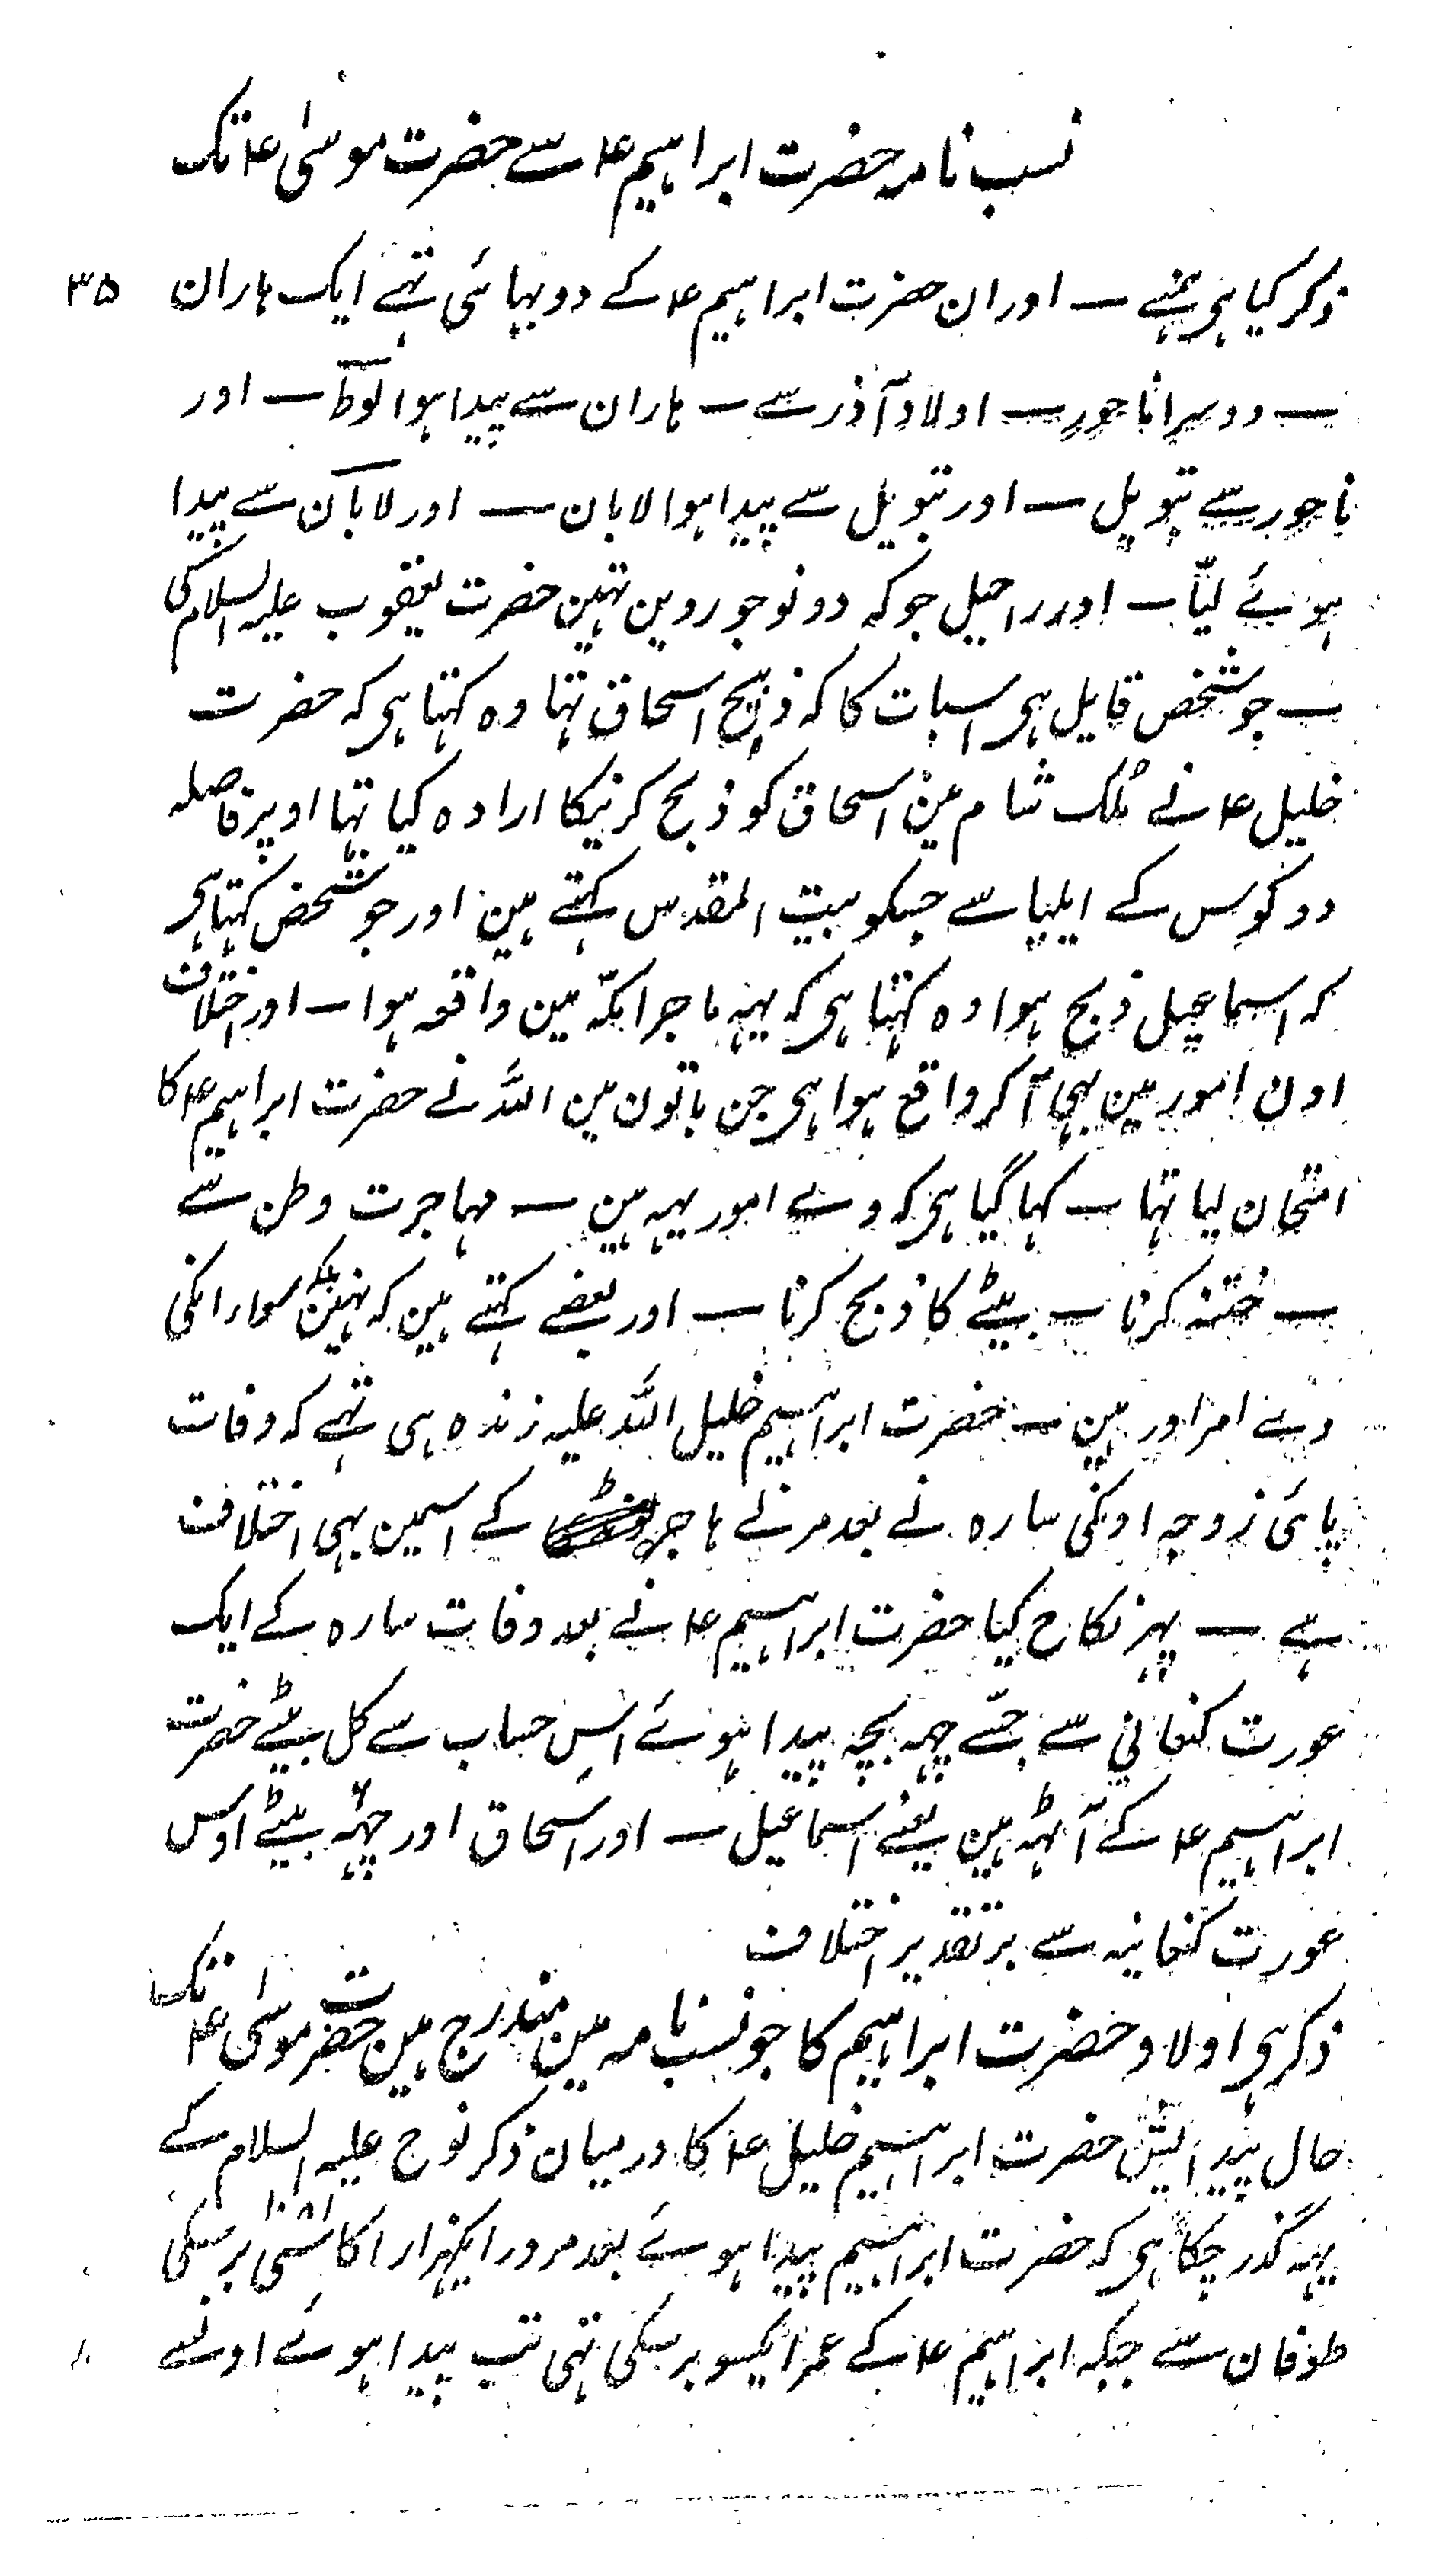 نسب نامہ حضرت ابراہیم ۴ سے حضرت موسیٰ ۴ تک
۳۵
ذکر کیا ہی ہمنے ــ اور ان حضرت ابراہیم ۴ کے دو بہائی تہے ایک ہاران
ــ دوسرا ناحور ــ اولاد آذر سے ــ ہاران سے پیدا ہوا لوط ــ اور
ناحور سے بتویل ــ اور بتویل سے پیدا ہوا لابان ــ اور لابان سے پیدا
ہوئے لیّا ــ اور راحیل جو کہ دونو جوروین تہین حضرت یعقوب علیہ السلام کی
ــ جو شخص قایل ہی اسبات کا کہ ذبیح اسحاق تہا وہ کہتا ہی کہ حضرت
خلیل ۴ نے مُلک شام مین اسحاق کو ذبح کرنیکا ارادہ کیا تہا اوپر فاصلہ
دو کوس کے ایلیا سے جسکو بیت المقدس کہتے ہین اور جو شخص کہتا ہی
کہ اسماعیل ذبح ہوا وہ کہتا ہی کہ یہہ ماجرا مکّہ مین واقعہ ہوا ــ اور اختلاف
اون امور مین بہی آکر واقع ہوا ہی جن باتون مین اللہ نے حضرت ابراہیم ۴ کا
امتحان لیا تہا ــ کہا گیا ہی کہ وے امور یہہ ہین ــ مہاجرت وطن سے
ــ ختنہ کرنا ــ بیٹے کا ذبح کرنا ــ اور بعضے کہتے ہین کہ نہین بلکہ سواء انکی
وے امر اور ہین ــ حضرت ابراہیم خلیل اللہ علیہ زندہ ہی تہے کہ وفات
پائی زوجہ اونکی سارہ نے بعد مرنے ہاجر کے اسمین بہی اختلاف
ہے ــ پہر نکاح کیا حضرت ابراہیم ۴ نے بعد وفات سارہ کے ایک
عورت کنعانی سے جسّے چہہ بچہ پیدا ہوئے اس حساب سے کل بیٹے حضرت
ابراہیم ۴ کے آٹہہ ہین یعنے اسماعیل ــ اور اسحاق اور چہہ بیٹے اوس
عورت کنعانیہ سے بر تقدیر اختلاف
ذکر ہی اولاد حضرت ابراہیم کا جو نسب نامہ مین مندرج ہین حضرت موسیٰ ۴ تک
حال پیدایش حضرت ابراہیم خلیل ۴ کا درمیان ذکر نوح علیہ السلام کے
یہہ گذر چکا ہی کہ حضرت ابراہیم پیدا ہوئے بعد مرور ایکہزار اکاسی ۱۰۸۱ برسکی
طوفان سے جبکہ ابراہیم ۴ کے عمر ایکسو برسکی تہی تب پیدا ہوئے اونسے